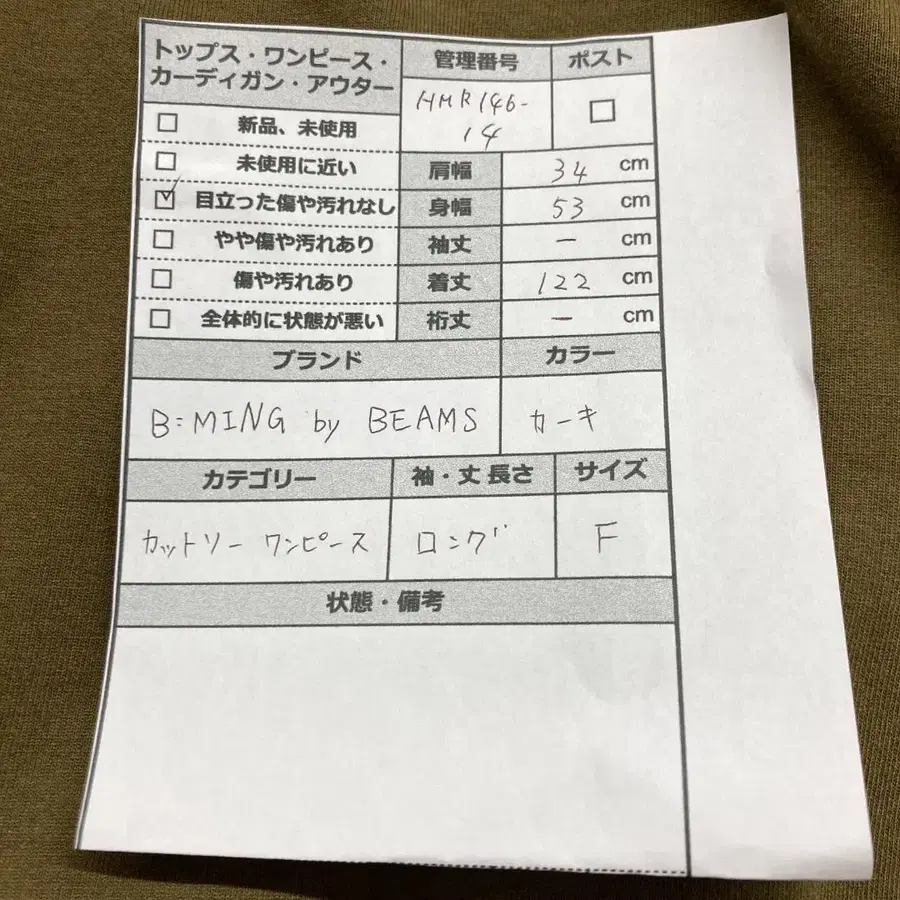 トップス・ワンピース・
カーディガン・アウター
管理番号
ポスト
HMR146-
14
☐
☐ 新品、未使用
☐ 未使用に近い
☑ 目立った傷や汚れなし
☐ やや傷や汚れあり
☐ 傷や汚れあり
☐ 全体的に状態が悪い
肩幅 34 cm
身幅 53 cm
袖丈 ー cm
着丈 122 cm
裄丈 ー cm
ブランド
カラー
B:MING by BEAMS
カーキ
カテゴリー
袖・丈 長さ
サイズ
カットソー ワンピース
ロング
F
状態・備考